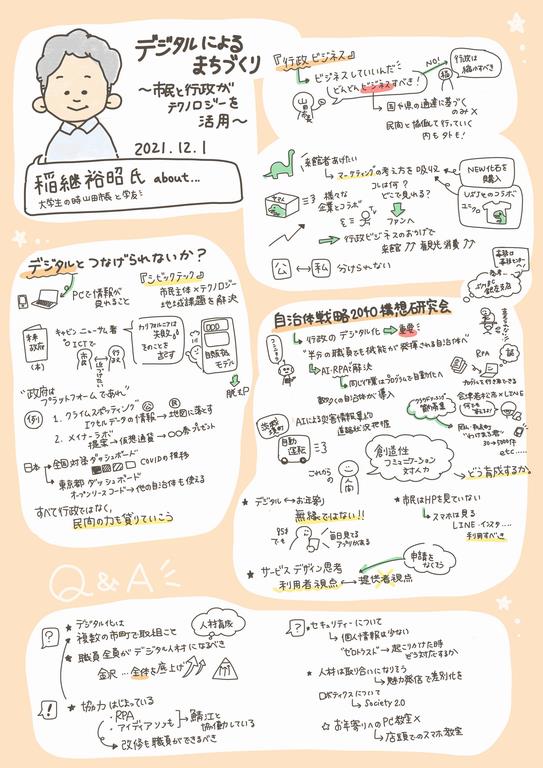 デジタルによる
まちづくり
～市民と行政が
テクノロジーを
活用～
2021.12.1
稲継裕昭氏 about...
大学生の時 山田市長と学友!
『行政ビジネス』
ビジネスしていいんだ!
どんどんビジネスすべき!
NO!
行政は
稼ぐすべき
国や県の通達に基づく
のみ×
民間と協働して行っていく
内もタトも!
来館者あげたい
マーケティングの考え方を吸収
コレは何?
どこで見れる?
様々な
企業とコラボ
ファンへ
NEW化石を
購入
ユニクロ
行政ビジネスのおかげで
来館↑↑ 観光消費↑↑
公 ↔ 私 分けられない
デジタルとつなげられないか?
PCで情報が
見れることに
『シビックテック』
市民主体×テクノロジー
地域課題を解決
未来
政府
(本)
キャビン・ニューサム著
ICTで
市民
行政
近づけたい
カリフォルニアは
失敗
そのことを
話す
自販機
モデル
脱却
"政府は
プラットフォームであれ"
(例)
1. クライムスポッティング
エクセルデータの情報→地図に落とす
2. メイナーラボ
提案→仮想通貨→○○券プレゼント
日本→全国対策ダッシュボード
COVIDの推移
東京都ダッシュボード
オープンソースコード→他の自治体も使える
すべて行政ではなく、
民間の力も貸りていこう
自治体戦略2040構想研究会
行政のデジタル化→重要
"半分の職員でも機能が発揮される自治体へ"
AI・RPA:解決
同じ作業はプログラムで自動化へ
数多くの自治体が導入
RPA
茨城
境町
自動
運転
AIによる災害情報集めて
道路状況把握
会津若松市×LINE
30→5000件
etc.....
これからの
人間
創造性
コミュニケーション
対人力
どう育成するか。
★ デジタル↔お年寄り
無縁ではない!!
95才
でも
毎日見てる
アプリがある
★ 市民はHPを見ていない
スマホは見る
LINE・インスタ....
利用すべき
★ サービスデザイン思考
利用者視点↔提供者視点
申請を
なくそう
Q&A
?
★ デジタル化は
★ 複数の市町で取組こと
人材育成
★ 職員全員がデジタル人材になるべき
金沢...全体を底上げ
!
★ 協力はじまっている
・RPA
・アイディアソンも
鯖江と
協働している
改修も職員ができるべき
?
セキュリティーについて
個人情報は少ない
"ゼロトラスト"→起こりかけた時
どう対応するか
★ 人材は取り合いになりそう
魅力発信で差別化を
ロボティクスについて
Society 2.0
☆ お年寄りへのPC教室×
店頭でのスマホ教室